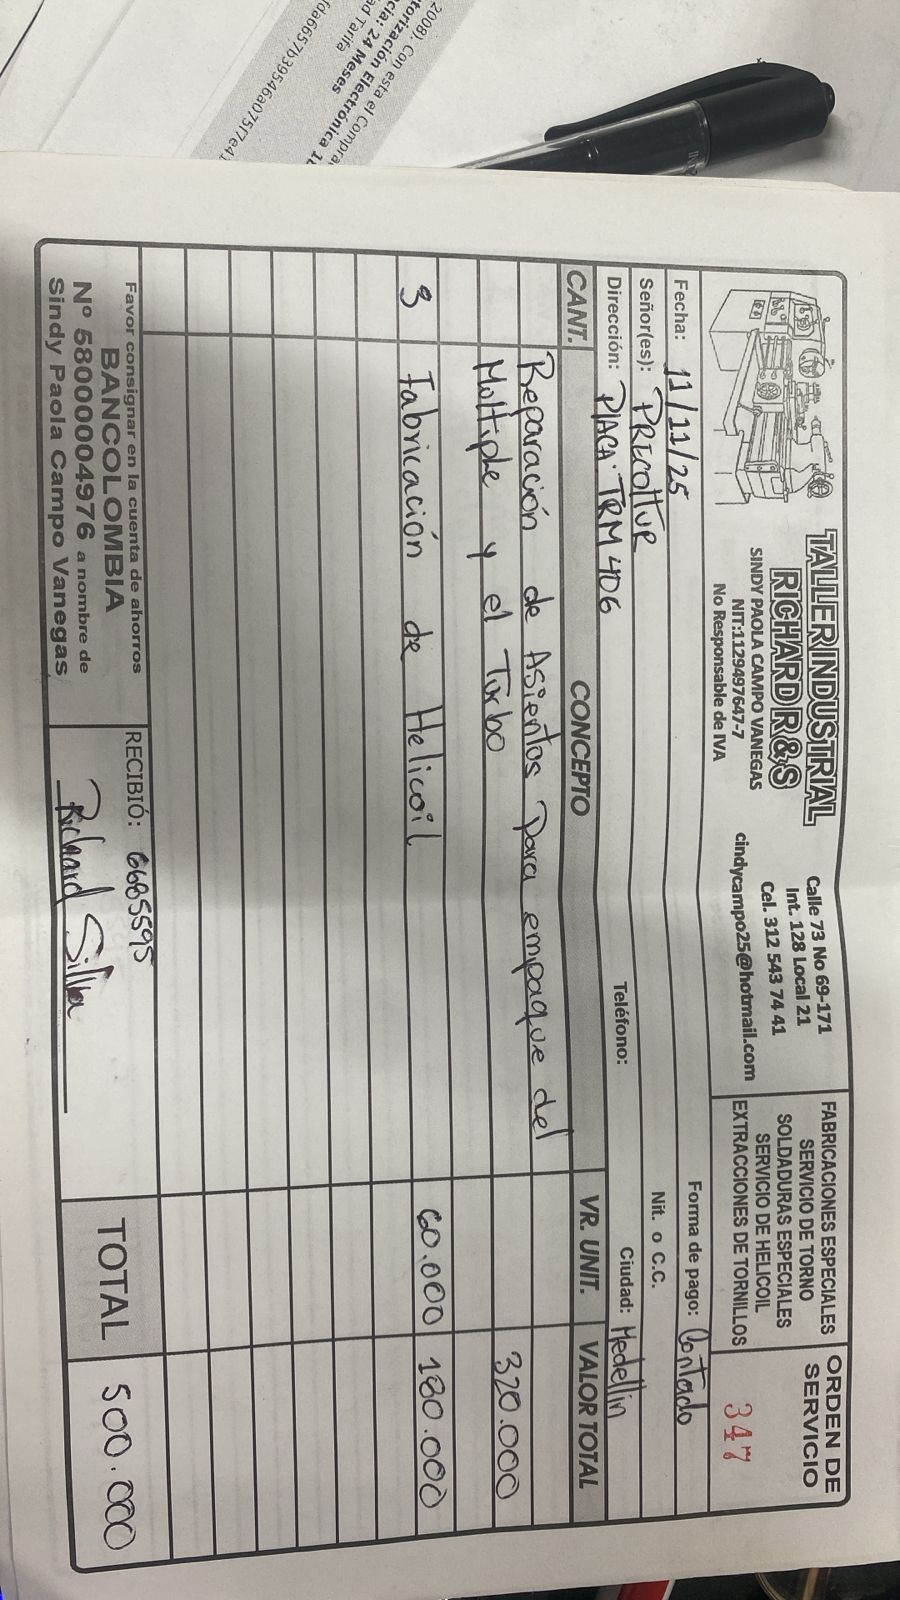 2008). Con esta el Compra
torización Electrónica 1
cia: 24 Meses
ad Tarifa
fda6657b39546a075f7e41
TALLER INDUSTRIAL
RICHARD R&S
SINDY PAOLA CAMPO VANEGAS
NIT:1129497647-7
No Responsable de IVA
Calle 73 No 69-171
Int. 128 Local 21
Cel. 312 543 74 41
cindycampo25@hotmail.com
FABRICACIONES ESPECIALES
SERVICIO DE TORNO
SOLDADURAS ESPECIALES
SERVICIO DE HELICOIL
EXTRACCIONES DE TORNILLOS
ORDEN DE
SERVICIO
347
Fecha: 11/11/25 Forma de pago: Contado
Señor(es): PRECOLTUR Nit. o C.C.
Dirección: PLACA· TRM 406 Teléfono: Ciudad: Medellin
CANT. CONCEPTO VR. UNIT. VALOR TOTAL
Reparación de Asientos Para empaque del
Multiple y el Turbo 320.000
3 Fabricación de Helicoil 60.000 180.000
Favor consignar en la cuenta de ahorros
BANCOLOMBIA
Nº 58000004976 a nombre de
Sindy Paola Campo Vanegas
RECIBIÓ: 6685595
Richard Silva
TOTAL 500.000